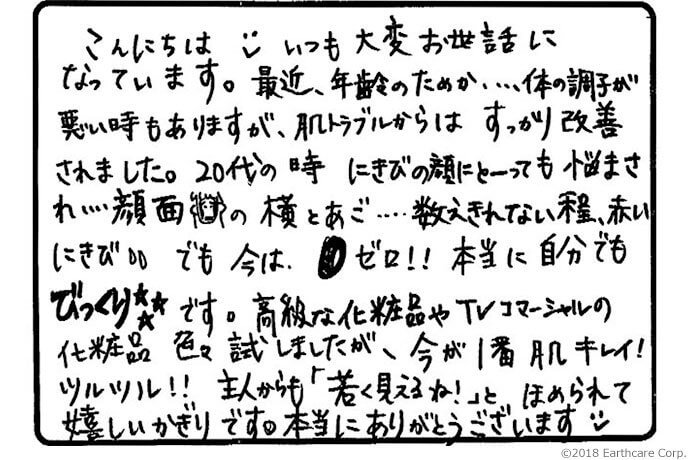 こんにちは いつも大変お世話に
なっています。最近、年齢のためか....体の調子が
悪い時もありますが、肌トラブルからは すっかり改善
されました。20代の時 にきびの顔にと〜っても悩まさ
れ....顔面の横とあご....数えきれない程、赤い
にきび でも今は、0ゼロ!! 本当に自分でも
びっくり☆☆☆です。高級な化粧品やTVコマーシャルの
化粧品 色々試しましたが、今が1番肌キレイ!
ツルツル!! 主人からも「若く見えるね!」と、ほめられて
嬉しいかぎりです。本当にありがとうございます
©2018 Earthcare Corp.